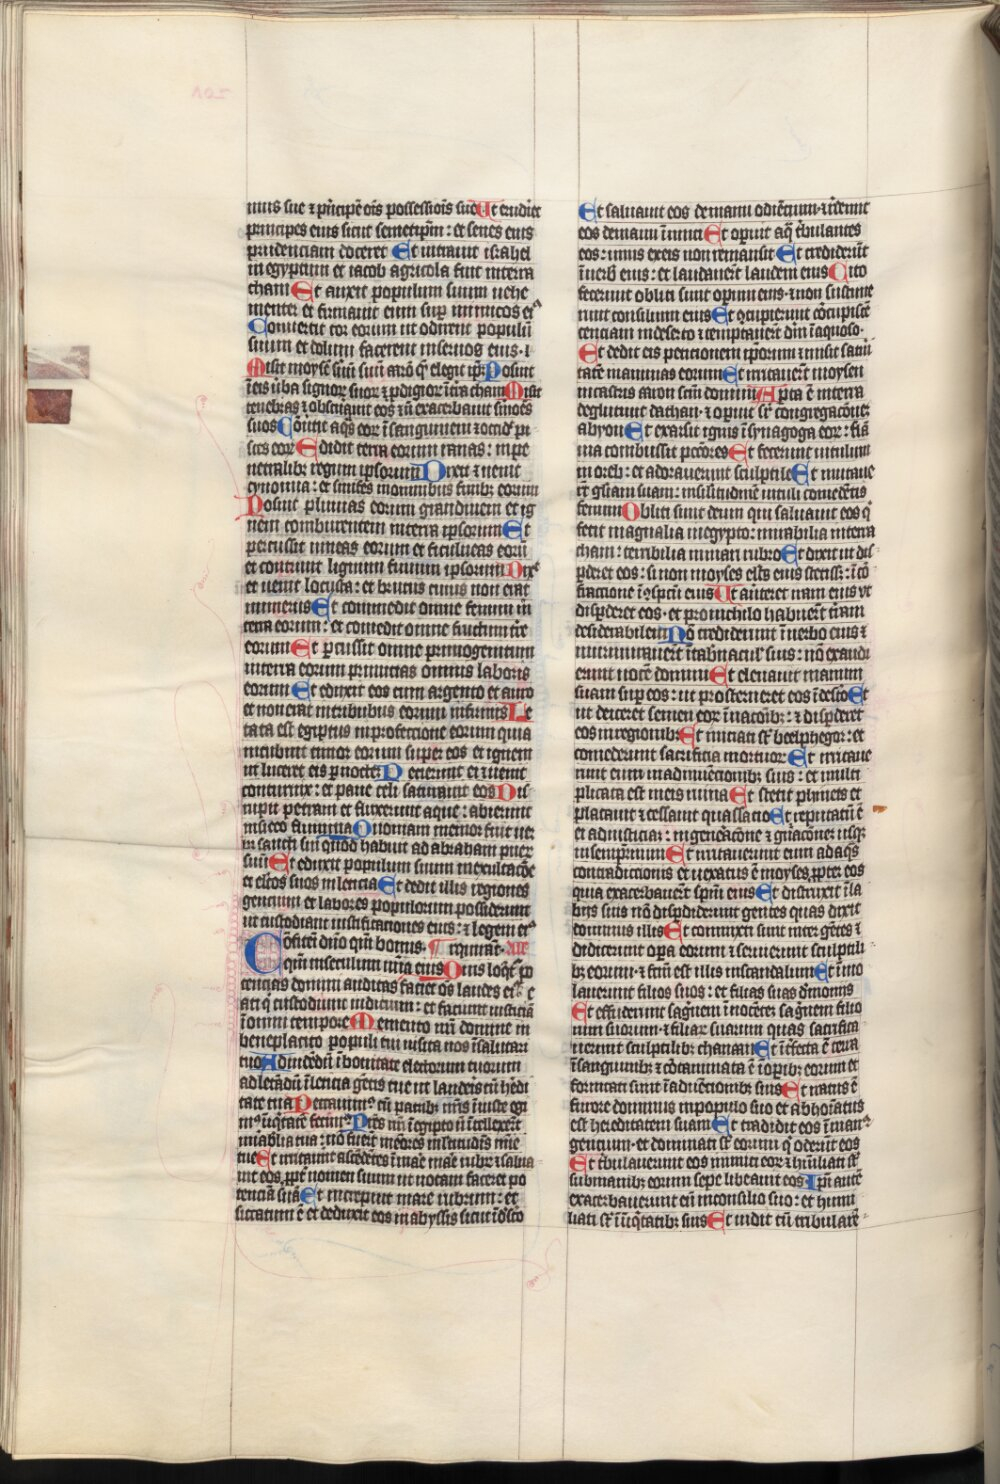 mus sue ⁊ pͥncipē oīs possessiōīs sue Ut erudiret
principes eius sicut semetip̄m: et senes eius
prudenciam doceret Et intrauit israhel
in egyptum et iacob agricola fuit in terra
cham Et auxit populum suum uehe
menter et firmauit eum sup inimicos eiꝰ
Conuertit cor eorum ut odirent populū
suum et dolum facerent in seruos eius
Misit moysē suū aarō q̄ elegit ip̄m Posuit
ī eis uba signorꝫ suorꝫ ⁊ pdigiorꝫ ī tra cham Misit
tenebras ⁊ obscurauit eos ⁊ nō exacerbauit smōes
suos Cōūtit aq̄s eorꝫ ī sanguinem ⁊ occidꝫ pi
sces eorꝫ Edidit terra eorum ranas: in pe
netralibꝫ regum ipsorum Dixit ⁊ uenit
cynomia: et sinifes in omnibus finibꝫ eorum
Posuit pluuias eorum grandinem et ig
nem comburentem in terra ipsorum Et
percussit uineas eorum et ficulneas eorū
et contriuit lignum finium ipsorum Dixꝫ
et uenit locusta: et brucus cuius non erat
numerus Et comedit omne fenum in
terra eorum: et comedit omne fructum tr̄e
eorum Et pcussit omne primogenitum
in terra eorum primicias omnis laboris
eorum Et eduxit eos cum argento et auro
et non erat in tribubus eorum infirmus Le
tata est egiptus in profectione eorum quia
incubuit timor eorum super eos et ignem
ut luceret eis p noctē Pecierunt et uenit
coturnix: et pane celi saturauit eos Dis
rupit petram et fluxerunt aque: abierunt
in sicco flumina Quoniam memor fuit uer
bi sancti sui quod habuit ad abraham puerꝫ
suū Et eduxit populum suum in exultacōe
et elc̄os suos in leticia Et dedit illis regiones
gencium et labores populorum possederunt
ut custodiant iustificationes eius: ⁊ legem eiꝰ
Cōfitei dn̄o qm̄ bonus
qm̄ in seculum mīa eius Quis loq̄t̄ po
tencias domini auditas faciet oēs laudes eiꝰ
ati q̄ custodiunt iudicium: et faciunt iusticiā
ī omni tempore Memento nr̄i domine in
beneplacito populi tui uisita nos ī salutari
tuo Ad uidēdū ī bonitate electorum tuorum
ad letādū ī leticia gētis tue ut laudeis cū hedi
tate tua Peccauimꝰ cū patribꝫ nr̄is iniuste egi
mꝰ iniq̄tatē fecimꝰ Pr̄es nr̄i ī egipto nō ītellexert
mirabilia tua: nō fuert mēores multitudīs mīe
tue Et irritauert ascēdētes ī mare mare rubrꝫ ⁊ salua
uit eos ppt̄ nomen suum ut notam faceret po
tenciā suā Et increpuit mare rubrum: et
siccatum ē et deduxit eos in abyssis sicut ī dsto
Et saluauit eos de manu odiencium: ⁊ redemit
eos de manu inimici Et operuit aq̄ tbulantes
eos: unus ex eis non remansit Et crediderūt
ī uerb eius: et laudauert laudem eius Cito
fecerunt obliti sunt operum eius: ⁊ non sustinue
runt consilium eius Et ꝯcupierunt ꝯcupiscē
cenciam in deserto: ⁊ temptauerūt dm̄ ī aquoso
Et dedit eis peticionem ip̄orum ⁊ misit satu
tatē in animas eorum Et irritauert moysen
in castris aaron sc̄m domini Apta ē terra
deglutiuit dathan: ⁊ opuit sr̄ congregacōnē
abyron Et exarsit ignis ī synagoga eorꝫ: flā
ma combussit pcc̄ores Et fecerunt uitulum
in oreb: et adorauerunt sculptile Et mutaue
rt̄ gl̄iam suam: in similitudinē uituli comedētis
fenum Obliti sunt deum qui saluauit eos q̄
fecit magnalia in egypto: mirabilia in terra
cham: terribilia in mari rubro Et dixit ut dis
pderet eos: si non moyses elc̄s eius stetissꝫ: ī ꝯ
fractione ī ꝯspctū eius Ut auteret iram eius ut
disperderet eos: et pro nichilo habuert tram
desiderabilem Nō crediderunt ī uerbo eius ⁊
murmurauert ī tab̄naculꝭ suis: nō exaudi
erunt uocē domini Et eleuauit manum
suam sup eos: ut prosterneret eos ī desto Et
ut deiceret semen eorꝫ ī nacōibꝫ: ⁊ dispderet
eos in regionibꝫ Et iniciati st̄ beelphegor: et
comederunt sacrificia mortuorꝫ Et irritaue
runt eum in adinuēcionibꝫ suis: et multi
plicata est in eis ruina Et stetit phinees et
placauit: ⁊ cessauit quassacio Et reputatū ē
ei ad iusticiā: in gēneacōnē ⁊ gn̄acōnē usqꝫ
in sempternum Et irritauerunt eum ad aq̄s
contradictionis et uexatus ē moyses ppter eos
quia exacerbauert spm̄ eius Et distinxit ī la
bijs suis nō dispdiderunt gentes quas dixit
dominus illis Et commixti sunt inter gētes ⁊
didicerunt opa eorum ⁊ seruierunt sculptili
bꝫ eorum: ⁊ fc̄m est illis in scandalum Et imo
lauerunt filios suos: et filias suas demonijs
Et effuderunt sāguinem inocētē: sāguinem filio
rum suorum: ⁊ filiarꝫ suarum quas sacrifica
uerunt sculptilibꝫ chanaan Et ī fecta ē terra
ī sanguinibꝫ ⁊ cōtaminata ē ī opibꝫ eorum et
fornicati sunt ī adiuēcionibꝫ suis Et iratus ē
furore dominus in populo suo et abhoīatus
est hereditatem suam Et tradidit eos ī manꝰ
gencium: et dominati st̄ eorum q̄ oderūt eos
Et tbulauerunt eos inimici eorꝫ ⁊ hūiliati st̄
sub manibꝫ eorum sepe liberauit eos Ip̄i autē
exacerbauerunt eū in consilio suo: et humi
liati st̄ ī iniq̄tatibꝫ suis Et uidit cū tribulare